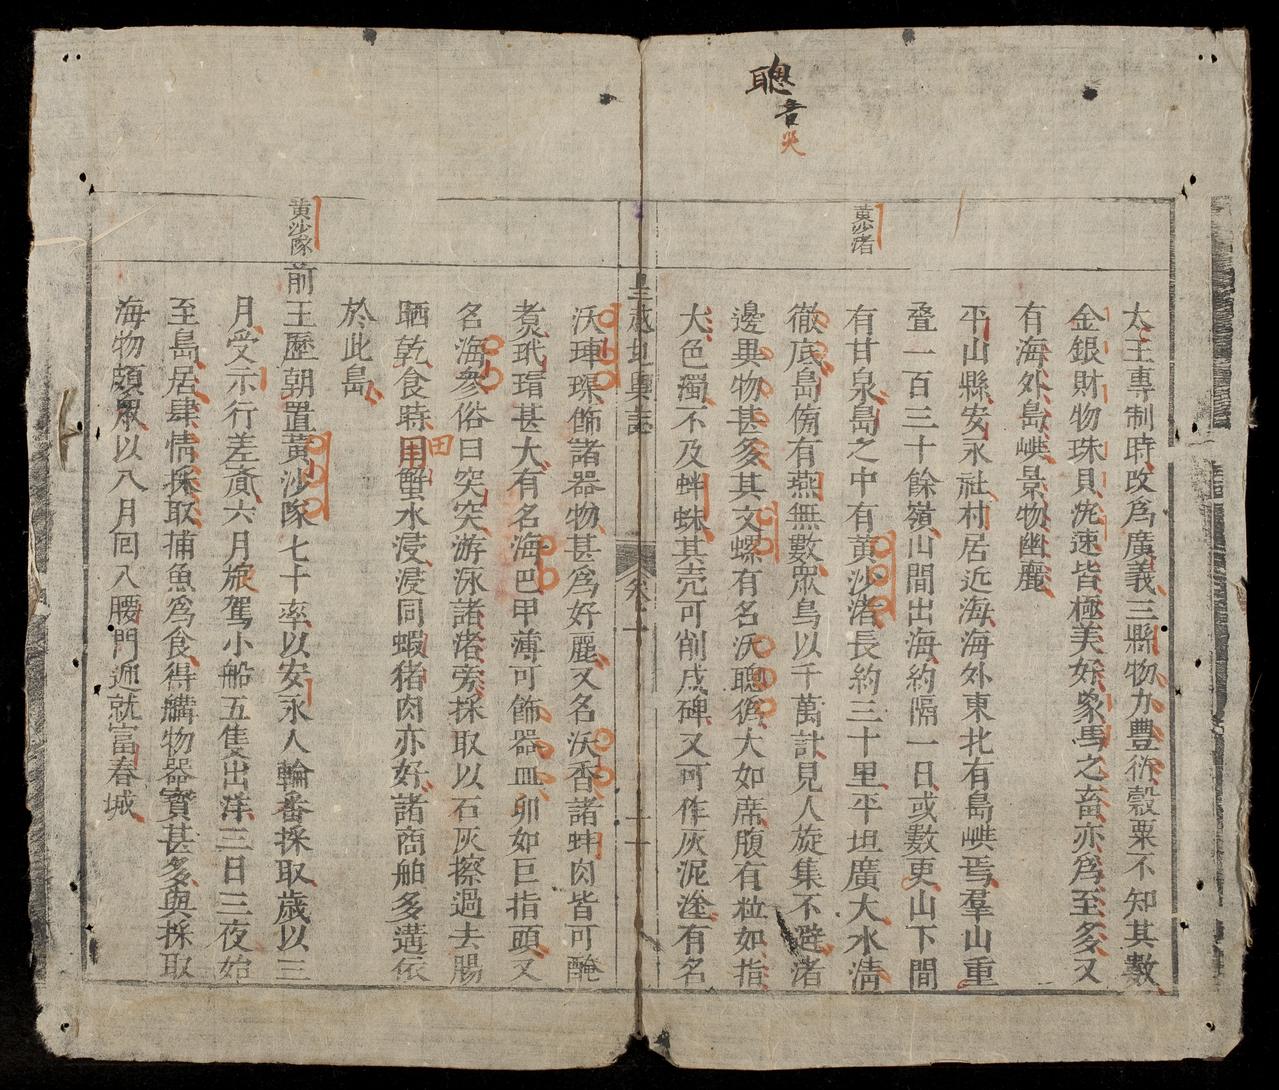 聰
音
黄沙渚
太王專制時改爲廣義三縣物力豐衍穀粟不知其數
金銀財物珠貝洸速皆極美好象馬之畜亦爲至多又
有海外島㠇景物幽麗
平山縣安永社村居近海海外東北有島㠇焉羣山重
叠一百三十餘嶺山間出海約隔一日或數更山下間
有甘泉島之中有黄沙渚長約三十里平坦廣大水清
徹底島傍有燕無數衆鳥以千萬計見人旋集不避渚
邊異物甚多其文螺有名沃聰㺔大如席腹有粒如指
大色濁不及蚌蛛其壳可削成碑又可作灰泥塗有名
皇越地輿誌
卷一
二十
沃琿璖飾諸器物甚爲好麗又名沃香諸蚌肉皆可醃
煮玳瑁甚大有名海巴甲薄可飾器皿卵如巨指頭又
名海參俗曰突突游泳諸渚旁採取以石灰擦過去腸
晒乾食時用蟹水浸浸同蝦猪肉亦好諸商舶多遘依
於此島
黄沙隊
前王歷朝置黄沙隊七十率以安永人輪番採取歲以三
月受示行差賫六月旅駕小船五隻出洋三日三夜始
至島居肆情採取捕魚爲食得艚物器寳甚多與採取
海物頗衆以八月囘入腰門迎就富春城